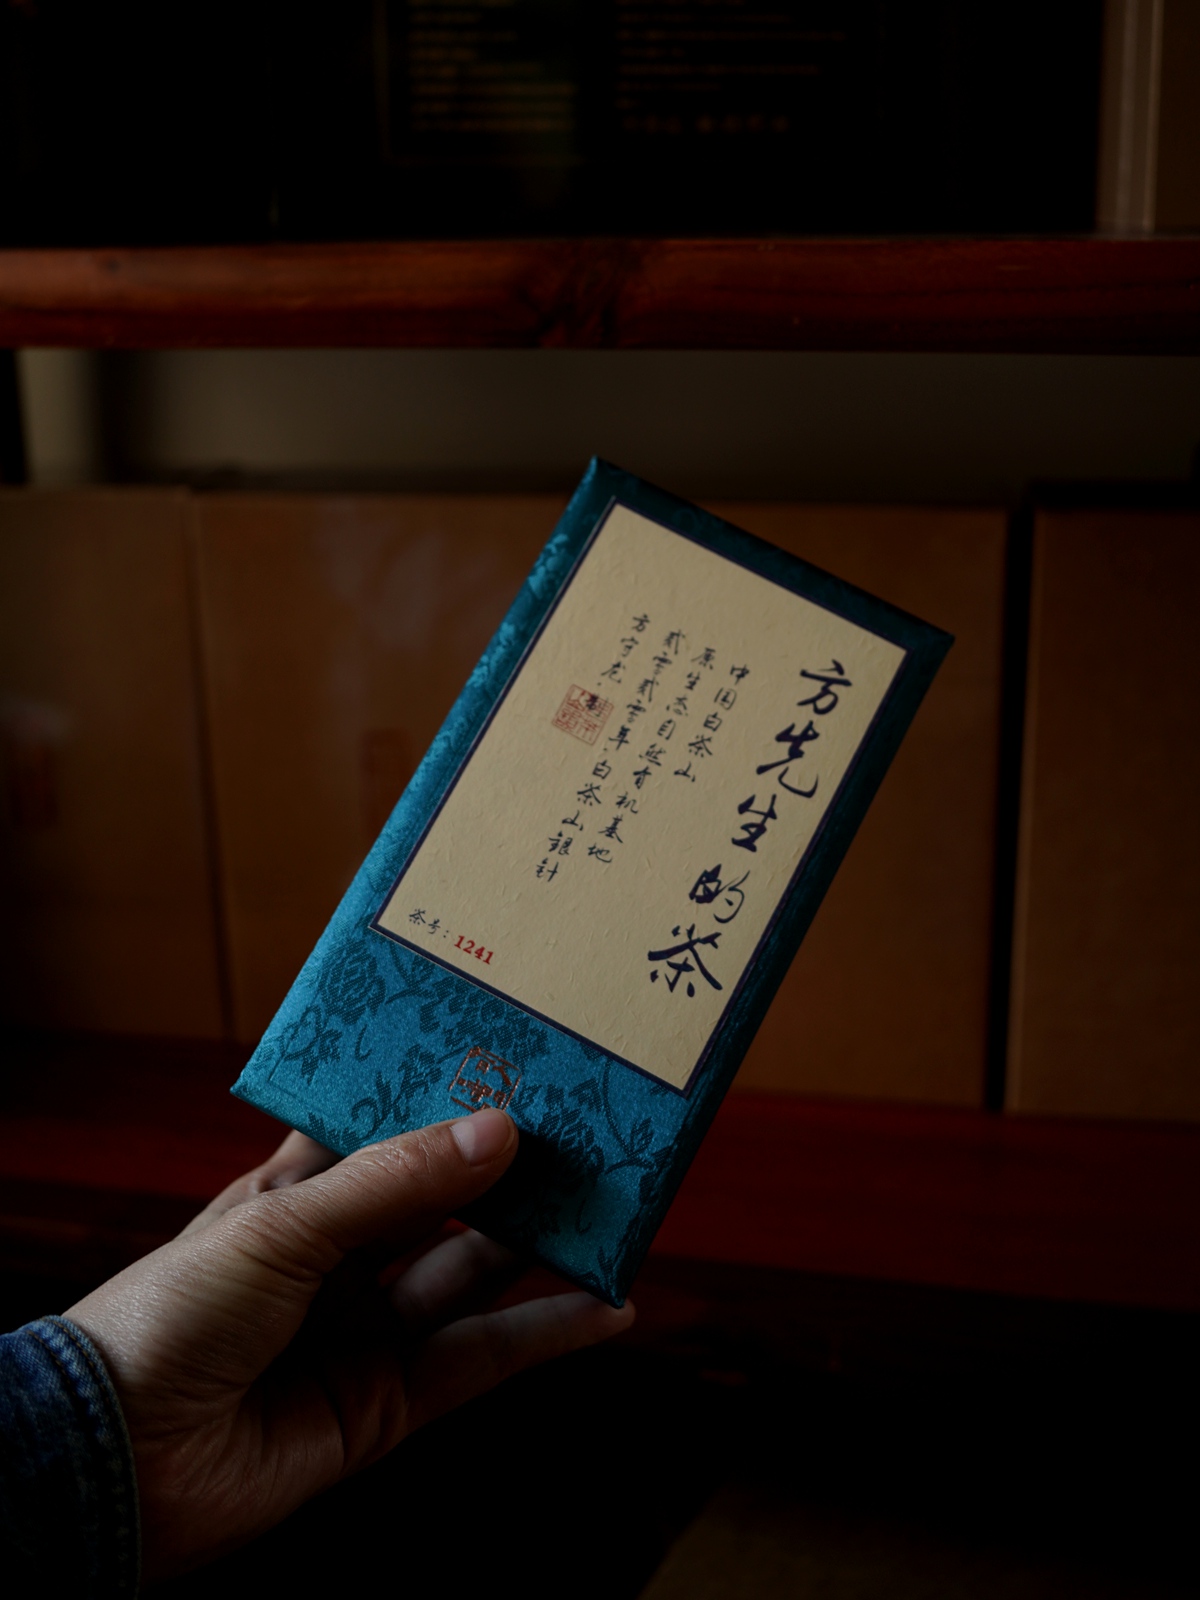 方先生的茶
中国白茶山
原生态自然有机基地
貳零貳零年·白茶山銀針
方守龙·
茶号：1241